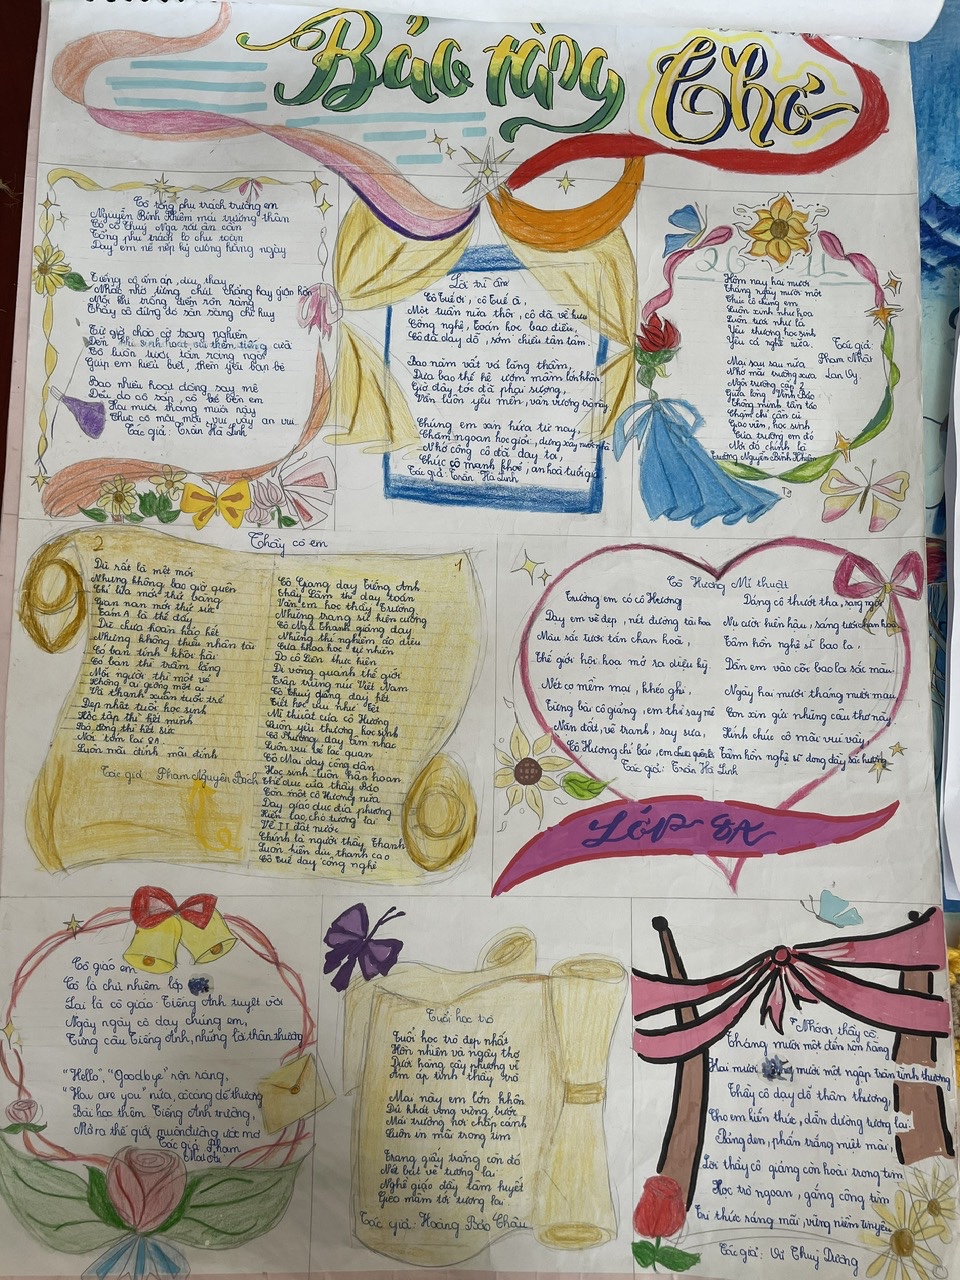 Bảo tàng Thơ
Cô tổng phụ trách trường em
Nguyễn Bỉnh Khiêm mái trường thân
Có cô Thuý Nga rất ân cần
Tổng phụ trách lo chu toàn
Dạy em nề nếp kỷ cương hằng ngày
Tiếng cô ấm áp, dịu thay
Nhắc nhở từng chút tháng hay giận hờn
Mỗi khi trống điểm rộn ràng
Thấy cô đứng đó sẵn sàng chỉ huy
Từ giờ chào cờ trang nghiêm
Đến khi sinh hoạt, vui thêm tiếng cười
Cô luôn tươi tắn rạng ngời
Giúp em hiểu biết, thêm yêu bạn bè
Bao nhiêu hoạt động say mê
Đều do cô sắp, cô kề bên em
Hai mươi tháng mười này
Chúc cô mãi mãi vui vầy an vui.
Tác giả: Trần Hà Linh
Lời tri ân
Cô Tươi, cô Tuế à,
Một tuần nữa thôi, cô đã về hưu
Công nghệ, toán học bao điều,
Cô đã dạy dỗ, sớm chiều tận tâm.
Bao năm vất vả lặng thầm,
Đưa bao thế hệ ươm mầm lớn khôn
Giờ đây tóc đã phai sương,
Vẫn luôn yêu mến, vấn vương trò này
Chúng em xin hứa từ nay,
Chăm ngoan học giỏi, dựng xây nước nhà.
Nhớ công cô đã dạy ta,
Chúc cô mạnh khoẻ, an hoà tuổi già.
Tác giả: Trần Hà Linh
20 11
Hôm nay hai mươi
Tháng ngày mười một
Chúc cô đúng em
Luôn xinh như hoa
Luôn tươi như lá
Yêu thương học sinh
Yêu cả nghề nữa.
Mai sau sau nữa
Nhớ mái trường xưa
Ngôi trường cấp 2
Giữa lòng Vĩnh Bảo
Thông minh tần tảo
Chăm chỉ cần cù
Giáo viên, học sinh
Của trường em đó
Nơi đó chính là
Trường Nguyễn Bỉnh Khiêm
Tác giả:
Phạm Nhật
Lan Vy
Thầy cô em
1
Cô Giang dạy Tiếng Anh
Thầy Lâm thì dạy toán
Văn em học thầy Trường
Những trang sử hiên cường
Cô Ngô Thanh giảng dạy
Những thí nghiệm ảo diệu
Của khoa học tự nhiên
Do cô Liên thực hiện
Đi vòng quanh thế giới
Trập trùng núi Việt Nam
Cô Thuỷ giảng dạy hết
Tiết học vui như Tết
Mĩ thuật của cô Hương
Luôn yêu thương học sinh
Cô Phương dạy âm nhạc
Luôn vui vẻ lạc quan
Cô Mai dạy công dân
Học sinh luôn hân hoan
Thể dục của thầy Bảo
Còn một cô Hương nữa
Dạy giáo dục địa phương
Hiến lao, cho tương lai
Về IT đất nước
Chính là người thầy Thanh
Luôn hiền dịu thanh cao
Cô Tuế dạy công nghệ
2
Dù rất là mệt mỏi
Nhưng không bao giờ quên
Chỉ lửa mới thử bằng
Gian nan mới thử sức
Tám A là thế đấy
Dù chưa hoàn hảo hết
Nhưng không thiếu nhân tài
Có bạn tính khôi hài
Có bạn thì trầm lắng
Mỗi người thì một vẻ
Không ai giống một ai
Vì thanh xuân tuổi trẻ
Đẹp nhất tuổi học sinh
Học tập thì hết mình
Bộ đồng thì hết sức
Nói tóm lại 8A
Luôn mãi đỉnh mãi đỉnh
Tác giả Phạm Nguyên Bách
Cô Hương Mĩ thuật
Trường em có cô Hương
Dạy em vẽ đẹp, nét đường tài hoa
Màu sắc tươi tắn chan hoà,
Thế giới hội hoạ mở ra diệu kỳ.
Nét cọ mềm mại, khéo ghi,
Từng bài cô giảng, em thì say mê
Nắn nót vẽ tranh, say sưa,
Cô Hương chỉ bảo, em chưa quên lời
Dáng cô thướt tha, sang ngời
Nụ cười hiền hậu, sáng tươi chan hoà
Tâm hồn nghệ sĩ bao la,
Dẫn em vào cõi bao la sắc màu.
Ngày hai mươi tháng mười mau
Con xin gửi những câu thơ này
Kính chúc cô mãi vui vầy,
Tâm hồn nghệ sĩ dong đầy sắc hương.
Tác giả: Trần Hà Linh
LỚP 8A
Cô giáo em
Cô là chủ nhiệm lớp
Lại là cô giáo Tiếng Anh tuyệt vời
Ngày ngày cô dạy chúng em,
Từng câu Tiếng Anh, những lời thân thương
"Hello", "Goodbye" rộn ràng,
"How are you" nữa, càng dễ thương
Bài học thêm Tiếng Anh trường,
Mở ra thế giới, muôn đường ước mơ
Tác giả Phạm
Tuổi học trò
Tuổi học trò đẹp nhất
Hồn nhiên và ngây thơ
Dưới hàng cây phượng vĩ
Ấm áp tình thầy trò
Mai này em lớn khôn
Dù khát vọng vững bước
Mái trường nơi chắp cánh
Luôn in mãi trong tim
Trang giấy trắng còn đó
Nét bút vẽ tương lai
Nghề giáo đầy tâm huyết
Gieo mầm tới tương lai
Tác giả: Hoàng Bảo Châu
Nhớ ơn thầy cô
Tháng mười một đến rộn ràng
Hai mươi mười một ngập tràn tình thương
Thầy cô dạy dỗ thân thương,
Cho em kiến thức, dẫn đường tương lai.
Bảng đen, phấn trắng miệt mài,
Lời thầy cô giảng còn hoài trong tim
Học trò ngoan, gắng công tìm
Tri thức sáng mãi, vững niềm tin yêu
Tác giả: Vũ Thuỳ Dương